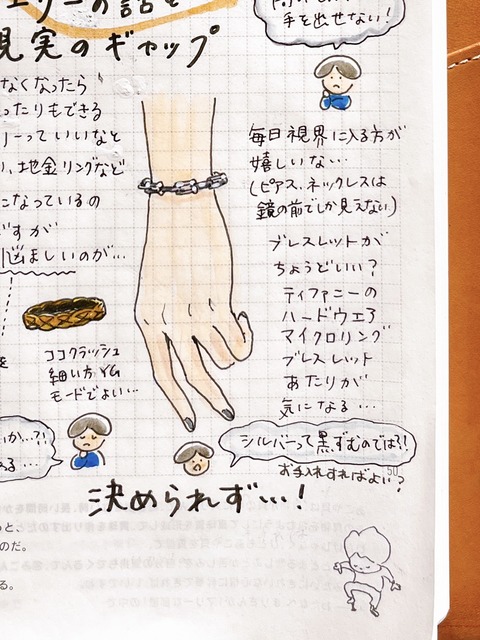 の話を
現実のギャップ
手を出せない!
なくなったら
ったりもできる
リーっていいなと
り、地金リングなど
になっているの
ですが
悩ましいのが…
毎日視界に入る方が
嬉しいな…
(ピアス、ネックレスは
鏡の前でしか見えない)
ブレスレットが
ちょうどいい?
ティファニーの
ハードウェア
マイクロリング
ブレスレット
あたりが
気になる…
ココクラッシュ
細い方YG
モードでよい…
いか…?!
る…
シルバーって黒ずむのでは?!
お手入れすればよい?
50
決められず…!
と、
のだ。
る。